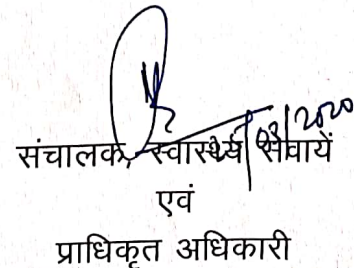 03/2020
संचालक, स्वास्थ्य सेवायें
एवं
प्राधिकृत अधिकारी